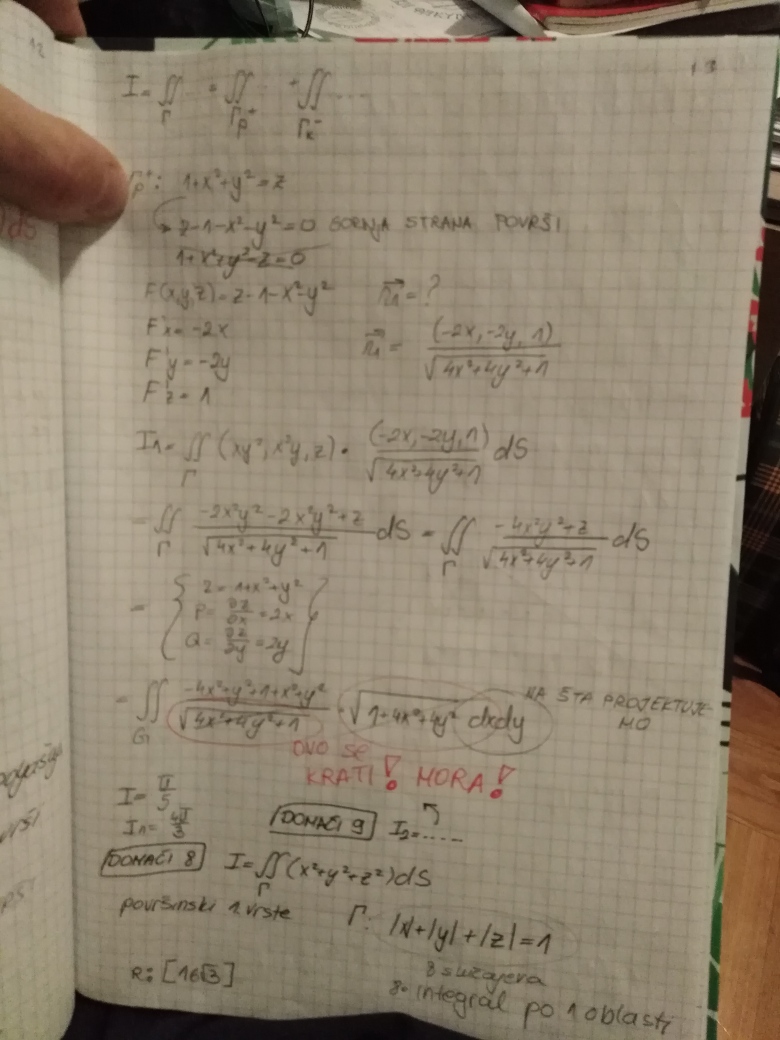 12
13
I = ∬_Γ ... = ∬_{Γp⁺} ... + ∬_{Γk⁻} ...
Γp⁺: 1+x²+y²=z
z-1-x²-y²=0 GORNJA STRANA POVRŠI
1+x²+y²-z=0
F(x,y,z)=z-1-x²-y² n₁=?
F'x=-2x
n₁ = (-2x,-2y,1) / √(4x²+4y²+1)
F'y=-2y
F'z=1
I₁= ∬_Γ (xy², x²y, z) · (-2x,-2y,1) / √(4x²+4y²+1) dS
= ∬_Γ (-2x²y²-2x²y²+z) / √(4x²+4y²+1) dS = ∬_Γ (-4x²y²+z) / √(4x²+4y²+1) dS
= { z=1+x²+y²
P=∂z/∂x=2x
Q=∂z/∂y=2y }
= ∬_{G₁} (-4x²y²+1+x²+y²) / √(4x²+4y²+1) · √(1+4x²+4y²) dxdy NA ŠTA PROJEKTUJE-
MO
OVO SE
KRATI! MORA!
I=π/5
I₁=4π/3 DOMAĆI 9 I₂=.....
DOMAĆI 8 I=∬_Γ (x²+y²+z²)dS
površinski 1. vrste Γ: |x|+|y|+|z|=1
8 slučajeva
R: [16√3] 8· integral po 1 oblasti